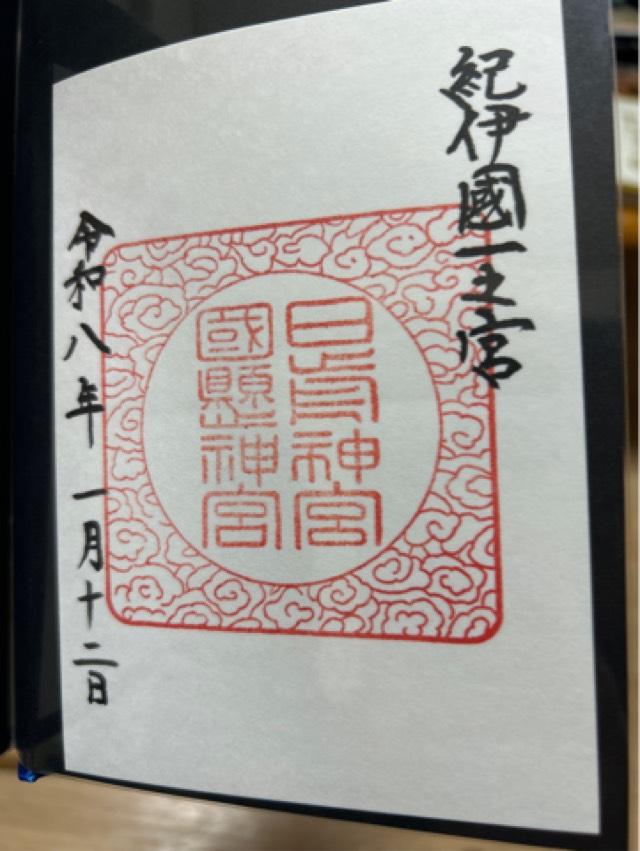 紀伊國一之宮
日前神宮
國懸神宮
令和八年一月十二日